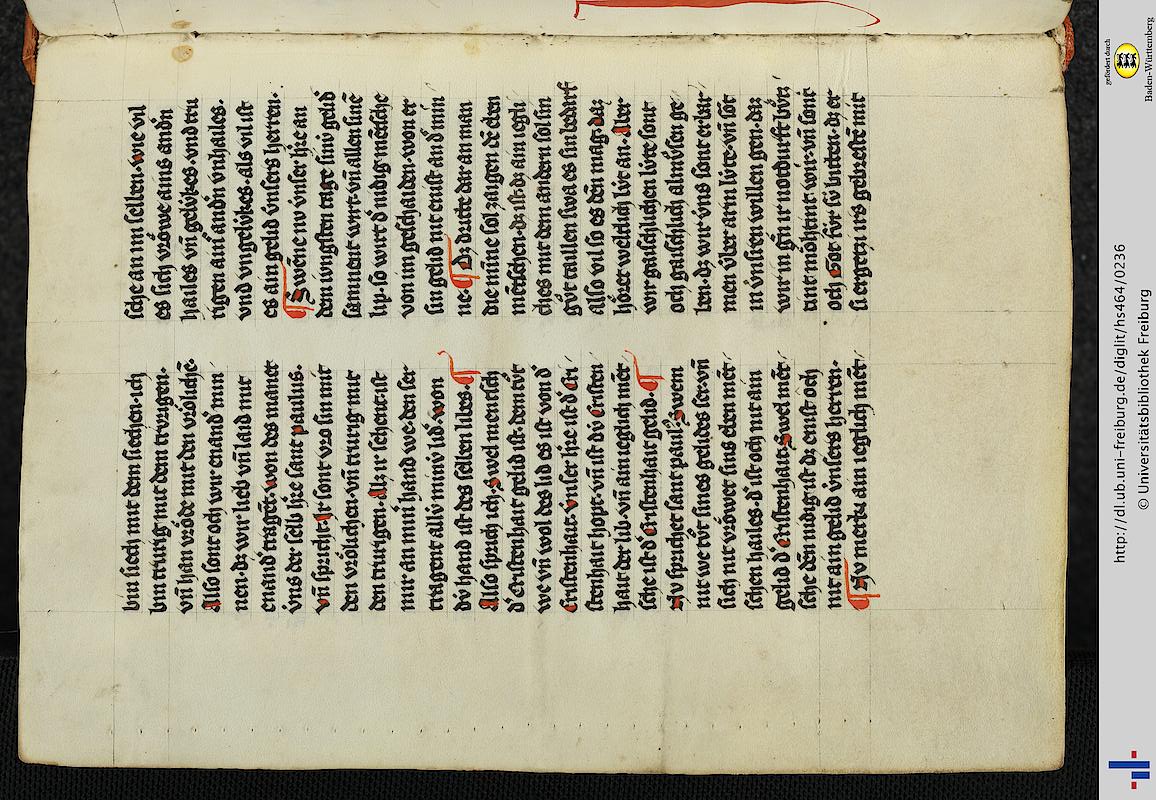 bin siech mit den siechen. ich
bin trurig mit dem trurigen.
vn̄ han vrö́de mit den vrölichē.
Also sont och wir enand' min
nen. dz wir lieb vn̄ laid mit
enand' tragēt. won des manet
v́ns der selb h're sant paulus.
vn̄ spricht. Ir sont vro sin mit
den vrölichen. vn̄ trurig mit
den trurigen. Alz ir sehent ist
mir an mim hand we. den ser
tragent alliv́ miniv́ lid'. won
div́ hand ist des selben libes. ¶
Also sprich ich. Swel mensch
d' cristenhait gelid ist. dem tv́t
we vn̄ wol des lid es ist. von d'
Cristenhait. vnser h're ist d' Cri
stenhait hopt. vn̄ ist div́ Cristen
hait der lib. vn̄ ain ieglich mēt
sche ist d' Cristenhait gelid. ¶
Nv spricht sant paul9. Swem
nit we tv́t sines gelides ser. vn̄
sich nit vröwet sins eben mēt
schen hailes. d' ist och nit ain
gelid d' Cristenhait. Swel mēt
sche den nidig ist dz enist och
nit ain gelid vnsers herren.
¶ Nv merke ain ieglich mēt
sche an im selben. wie vil
es sich vröwe ains andn̄
hailes vn̄ gelúkes. vnd tru
rigen ain andn̄ vnhailes.
vnd vngelúkes. als vil ist
es ain gelid vnsers herren.
¶ Swēne nv vnser h're an
dem iungsten tage siniv́ gelid'
samment wirt. vn̄ allen sinē
lip. so wirt d' nidig mēsche
von im geschaiden. won er
sin gelid nit enist an d' min
ne. ¶ Dz dritte dar an man
die minne sol zaigen dē eben
mētschen. dz ist. dz ain iegli
ches mit dem andern sol sin
gv́t taillen swa es sin bedarf
also vil so es den mag. daz
hö́ret weltlich lv́t an. Aber
wir gaischlichen lv́te sont
och gaischlich almv́sen ge
ben. dz wir v́ns sont erbar
men v́ber arm lv́te. vn̄ sōt
in v́nsren willen gen. daz
wir in gn̄ ir notdurft bv́z
tint möhtint wir. vn̄ sont
och Got fv́r siv́ bitten. dz er
si ergetzi irs gebrestē mit
http://dl.ub.uni-freiburg.de/diglit/hs464/0236
© Universitätsbibliothek Freiburg
gefördert durch
Baden-Württemberg